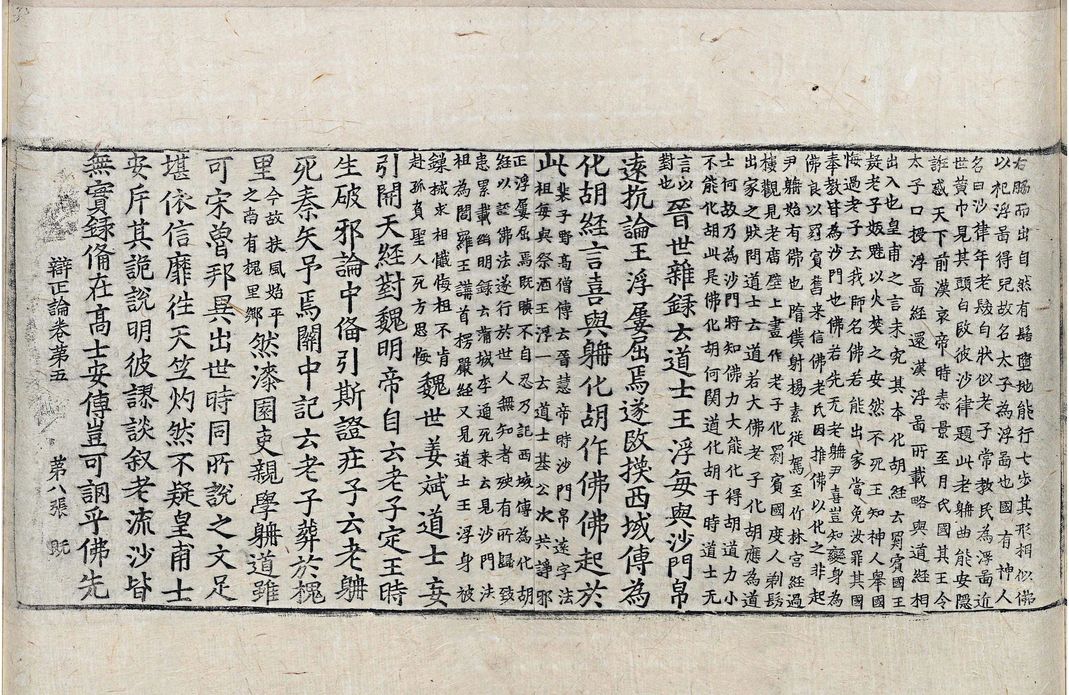 右脇而出自然有髭墮地能行七步其形相似佛
以祀浮啚得兒故名太子為浮啚也國有神人
名曰沙律年老髮白狀似老子常教民為浮啚近
世黃巾見其頭白改彼沙律題此老聃曲能安隱
誑惑天下前漢哀帝時秦景至月氏國其王令
太子口授浮啚經還漢浮啚所載略與道經相
出入也皇甫之言未究其本化胡經云罽賓國王
疑老子妖魅以火焚之安然不死王知神人舉國
悔過老子云我師名佛若能出家當免汝罪其國
奉教皆為沙門也佛若先无老聃尹喜豈知變身為
佛良以罽賓舊來信佛老氏因推佛以化之非起
尹聃始有佛也隋僕射楊素從駕至竹林宮經過
樓觀見老君壁上畫作老子化罽賓國度人剃髮
出家之狀問道士云道若大佛老子化胡應為道
士何故乃為沙門將知佛力大能化得胡道力小
不能化胡此是佛化胡何関道化胡于時道士无
言以對也晉世雜録云道士王浮每與沙門帛
遠抗論王浮屢屈焉遂改換西域傳為
化胡經言喜與聃化胡作佛佛起於
此裴子野高僧傳云晉慧帝時沙門帛遠字法
祖每與祭酒王浮一云道士基公次共諍邪
正浮屢屈焉既瞋不自忍乃託西域傳為化胡
經以誣佛法遂行於世人無知者殃有所歸致
患累載幽明録云蒲城李通死來云見沙門法
祖為閻羅王講首楞嚴經又見道士王浮身被
鏁械求祖懺悔祖不肯
赴孫負聖人死方思悔魏世姜斌道士妄
引開天經對魏明帝自云老子定王時
生破邪論中俻引斯證庄子云老聃
死秦矢弔焉關中記云老子葬於槐
里今故扶風始平之南有槐里鄉然漆園吏親學聃道雖
可宋魯邦異出世時同所說之文足
堪依信靡往天竺灼然不疑皇甫士
安斥其詭說明彼謬談叙老流沙皆
無實録俻在髙士安傳豈可誷乎佛先
辯正論卷第五 第八張 既